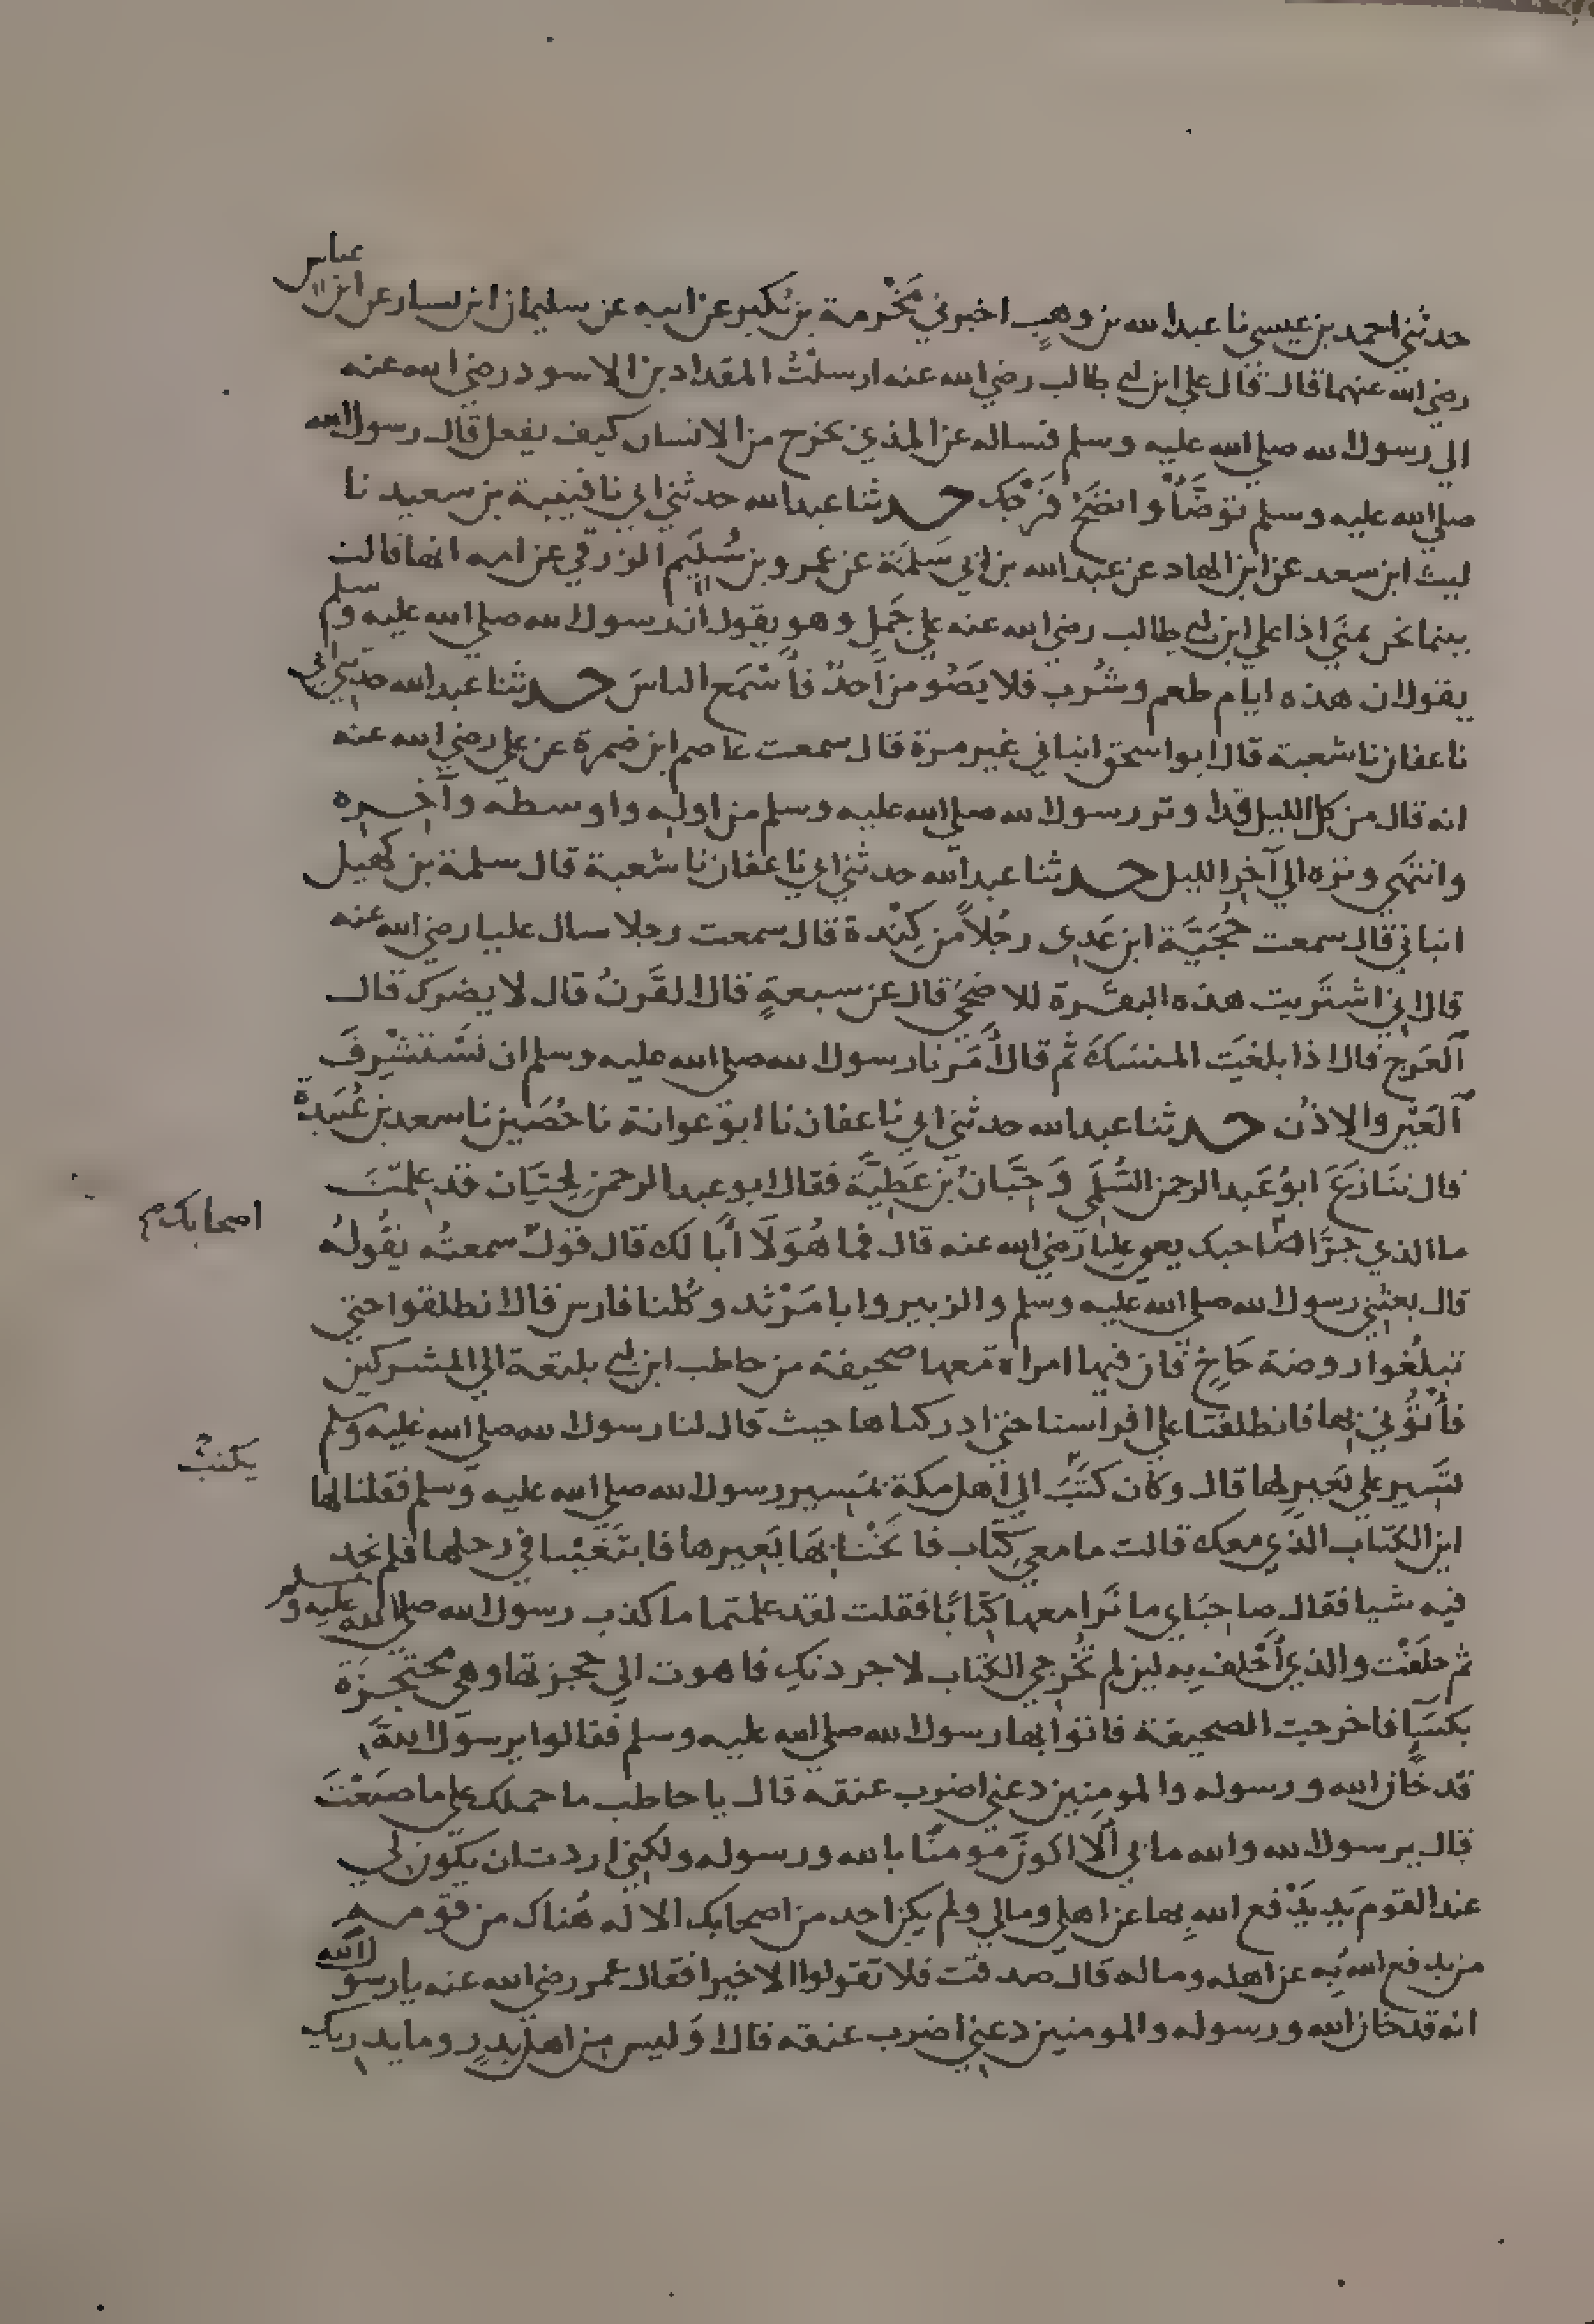 عباس
حدثني احمد بن عيسى نا عبد الله بن وهب اخبرني مَخْرمة بن بُكير عن ابيه عن سليمان ابن يسار عن ابن
رضي الله عنهما قال قال علي ابن ابي طالب رضي الله عنه ارسلتُ المقداد بن الاسود رضي الله عنه
الي رسول الله صلي الله عليه وسلم فساله عن المذي يخرج من الانسان كيف يفعل قال رسول الله
صلي الله عليه وسلم توضَّأْ وانضَحْ فَرْجَك حدثنا عبد الله حدثني ابي نا قتيبة بن سعيد نا
ليث ابن سعد عن ابن الهاد عن عبد الله بن ابي سَلَمَة عن عمرو بن سُلَيم الزرقي عن امه انها قالت
بينما نحن بمنًي اذا علي ابن ابي طالب رضي الله عنه علي جَمَلٍ وهو يقول ان رسول الله صلي الله عليه وسلم
يقول ان هذه ايام طعم وشُرب فلا يَصُومن أحدٌ فأسْمَع الناسَ حدثنا عبد الله حدثني ابي
نا عفان نا شعبة قال ابو اسحق انباني غير مرة قال سمعت عاصم ابن ضمرة عن علي رضي الله عنه
انه قال من كل الليل قد اوتر رسول الله صلي الله عليه وسلم من اوله واوسطه وآخره
وانتهي وتره الي آخر الليل حدثنا عبد الله حدثني ابي نا عفان نا شعبة قال سلمة بن كهيل
انباني قال سمعت حُجَيَّة ابن عَدِي رجُلاً من كِنْدة قال سمعت رجلا سال عليا رضي الله عنه
قال اني اشتريت هذه البقرة للاضحي قال عن سبعةٍ قال القَرنُ قال لا يضرك قال
العَرج قال اذا بلغَت المنسَكَ ثم قال أَمَرنا رسول الله صلي الله عليه وسلم ان نَسْتَشْرِفَ
العَيْن والاذُن حدثنا عبد الله حدثني ابي نا عفان نا ابو عوانة نا حُصَين نا سعد بن عُبَيدة
قال تنَازَعَ ابو عَبد الرحمن السُّلَمي وَحِبَّانُ بن عَطِيَّة فقال ابو عبد الرحمن لحِبَّان قد علمتَ
ما الذي جرَّا صاحبك يعني عليا رضي الله عنه قال فما هُوَ لَا أبَا لك قال قولٌ سمعتُه يقُولُه
اصحابك م
قال بعثني رسول الله صلي الله عليه وسلم والزبير وابا مَرْثد وكُلنا فارس قال انطلقوا حتي
تبلغُوا روضة خَاخٍ فان فيها امراة معها صحيفة من حاطب ابن ابي بلتعة الي المشركين
فأْتُوني بها فانطلقنا علي افراسنا حتي ادركناها حيث قال لنا رسول الله صلي الله عليه وسلم
تَسِير علي بَعِيرٍ لها قال وكان كتَبَ الي اهل مكة بمسِير رسول الله صلي الله عليه وسلم فقلنا لها
يكتبُ
اين الكتاب الذي معك قالت ما معي كتاب فانَخْنا بهَا بَعِيرها فابتَغَينا في رحلها فلم نجد
فيه شيا فقال صاحبَاي ما نَرا معها كتابًا فقلت لقد علمتما ما كذب رسول الله صلي الله عليه وسلم
ثم حلَفْت والذي أُحْلَف به لين لم تُخْرجي الكتاب لاجردنكِ فاهوت الي حُجزتها وهي محتجِزَة
بكسَآءٍ فاخرجت الصحيفة فاتوا بها رسول الله صلي الله عليه وسلم فقالوا يرسول الله
قد خان الله ورسوله والمومنين دعني اضرب عنقه قال يا حاطب ما حملك علي ما صنَعْتَ
قال يرسول الله والله ما بي ألا اكونَ مومنًا بالله ورسوله ولكني اردت ان يكون لي
عند القوم يَدٌ يَدْفع الله بها عن اهلي ومالي ولم يكن احد من اصحابك الا له هُناك من قومه
من يدفع الله به عن اهله وماله قال صدقت فلا تقولوا الا خيرا فقال عمر رضي الله عنه يا رسول الله
انه قد خان الله ورسوله والمومنين دعني اضرب عنقه قال اوَليس من اهل بدرٍ وما يدريك